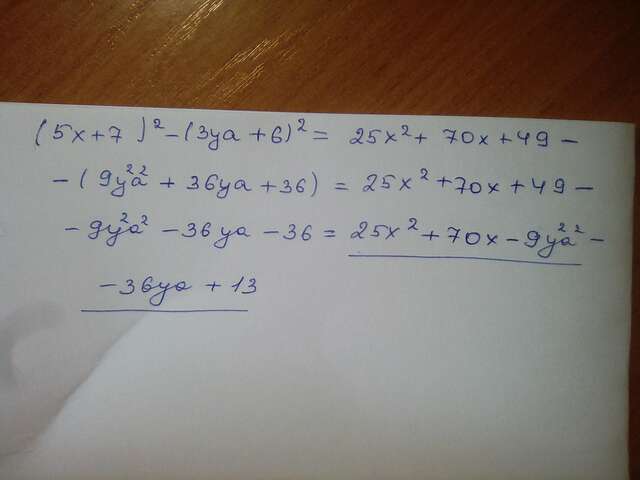 (5x+7)²-(3ya+6)²= 25x²+ 70x+49 -
-(9y²a² + 36ya+36) = 25x²+70x+49-
- 9y²a² - 36ya - 36 = 25x²+70x-9y²a² -
-36ya + 13